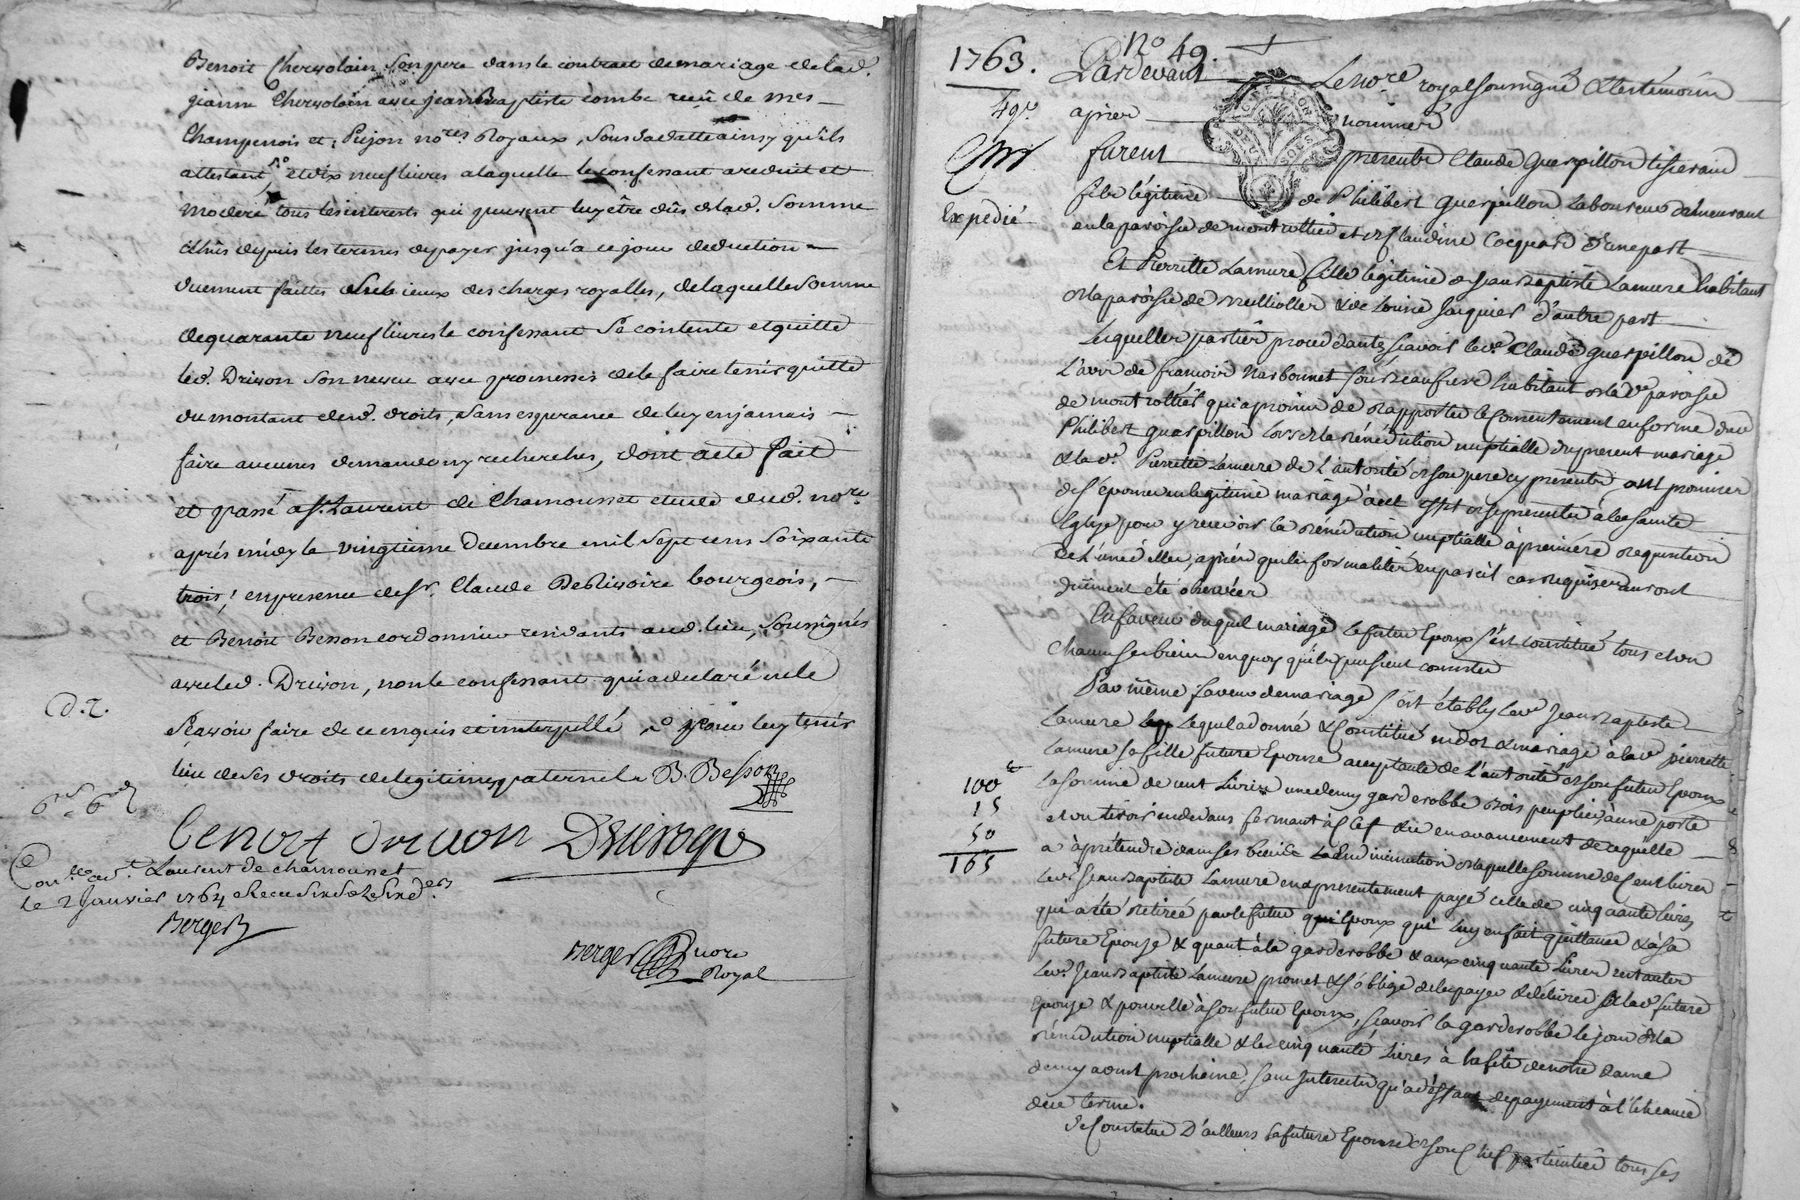 Benoit Chervolain son pere dans le contract de mariage de lad.
jeanne Chervolain avec jean Baptiste Combe reçu de mes
Champenois et Pejon nores. Royaux, sous sa datte ainsy qu'ils
attestent, et dix neuf livres a laquelle le confessant a reduit et
moderé tous les interests qui peuvent luy être dûs de lad. somme
depuis les termes de payer jusqu'a ce jour deduction
duement faittes des vieux des charges royalles, de laquelle somme
de quarante neuf livres le confessant se contente et quitte
led. Drivon son neveu avec promesses de le faire tenir quitte
du montant desd. droits, sans esperance de luy en jamais
faire aucunes demandes ny recherches, dont acte fait
et passé a st. Laurent de Chamousset etude dud. nore.
aprés midy le vingtieme Decembre mil sept cens soixante
trois, en presence de sr. Claude bourgeois,
et Benoit Besson cordonnier residants aud. lieu, soussignés
avec led. Drivon, non le confessant qui a declaré ne le
sçavoir faire de ce enquis et interpellé pour luy tenir
lieu de ses droits de legitimes paternels B. Besson
d. 2.
benoit drivon
st. Laurent de chamousset
le 2 Janvier 1764
Berger
Berger nore
Royal
No 49.
1763. Pardevant Le nore. royal soussigné & les témoins
49e. après nommés
furent presents Claude Guerpillon tisserand
Expedié fils légitime de Philibert Guerpillon Laboureur demeurant
en la paroisse de montrottier et de Claudine Cocquard d'une part
Et Pierrette Lamure fille légitime de Jean Baptiste Lamure habitant
de la paroisse de & de Louise Jacquier d'autre part
Lesquelles parties procedantes sçavoir led. Claude Guerpillon de
l'avis de francois Narbonnet son beaufrere habitant de lad. paroisse
de montrottier qui a promis de rapporter le consentement en forme dud.
Philibert Guerpillon lors de la bénédiction nuptialle du present mariage
& lad. Pierrette Lamure de l'autorité de son pere cy present ont promis
de s'épouser en legitime mariage à cet effet de se presenter à la sainte
Eglise pour y recevoir la bénédiction nuptialle à première requisition
de l'une d'elles, après que les formalités en pareil cas requises auront
dûement été observées
En faveur duquel mariage le futur Epoux s'est constitué tous & un
chacuns ses biens en quoy qu'ils puissent consister
Par même faveur de mariage s'est établi led. Jean Baptiste
Lamure lequel a donné & constitué en dot & mariage à lad. pierrette
Lamure sa fille future Epouse acceptante de l'autorité de son futur Epoux
100# la somme de cent Livres une demy garderobbe bois peuplier à une porte
15 et un tiroir au dedans fermant à clef & ce en avancement de ce qu'elle
50 a à prétendre dans ses biens de laquelle somme de cent livres
165 led. Jean Baptiste Lamure en a presentement payé celle de cinquante livres
qui a été retirée par le futur Epoux qui luy en fait quittance & à sa
future Epouse & quant à la garderobbe & aux cinquante Livres restantes
led. Jean Baptiste Lamure promet & s'oblige de les payer & délivrer à lad. future
Epouse & pour elle à son futur Epoux, sçavoir la garderobbe le jour de la
bénédiction nuptialle & les cinquante Livres à la fête de notre dame
de my aoust prochaine, sans interests qu'à déffaut de payement à l'échéance
dud. terme.
Se Constitue D'ailleurs la future Epouse de son Chef particulier tous ses